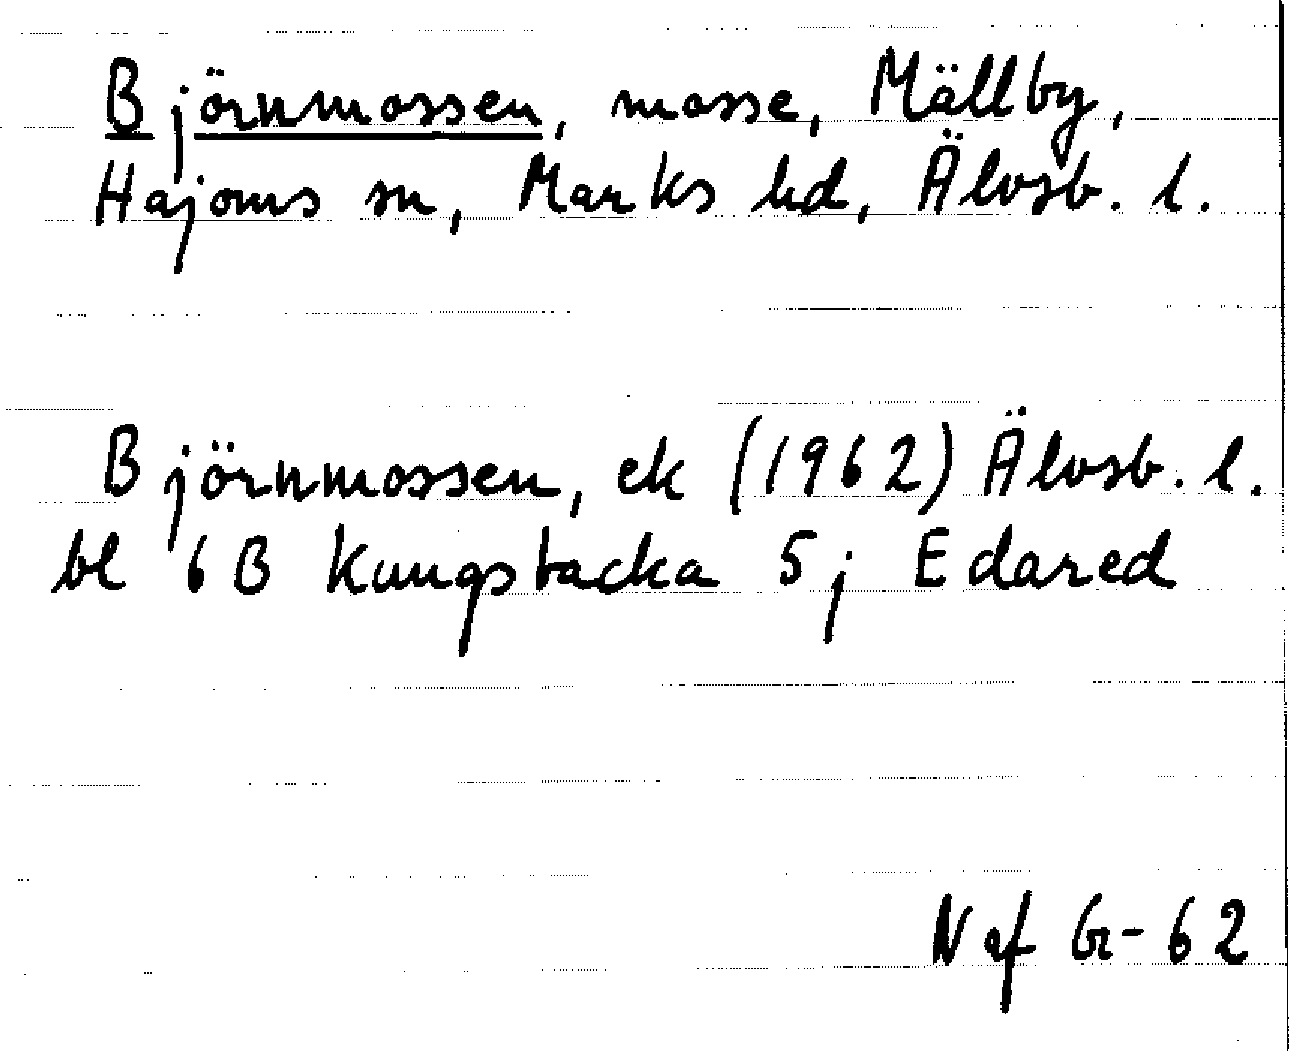 Björnmossen, mosse, Mällby,
Hajoms sn, Marks hd, Älvsb. l.
Björnmossen, ek (1962) Älvsb. l.
bl 6B Kungsbacka 5j Edared
N af G-62